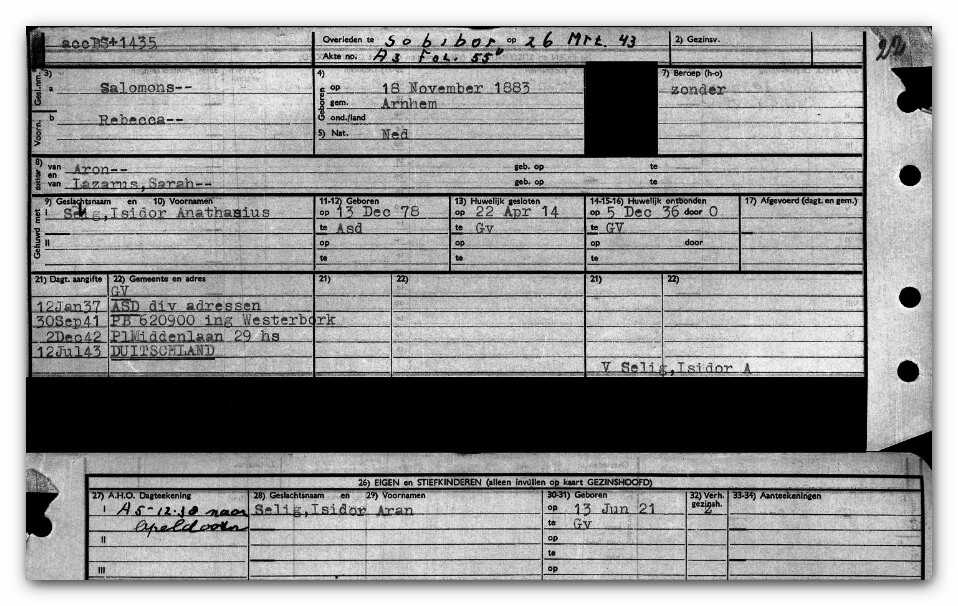 accBS+1435
Overleden te Sobibor op 26 Mrt. 43
Akte no. A3 Fol. 55v
2) Gezinsv.
22
Gesl.nm.
3)
a Salomons--
Voorn.
b Rebecca--
4)
Geboren
op 18 November 1883
gem. Arnhem
ond./land
5) Nat. Ned
7) Beroep (h-o)
zonder
8)
van Aron-- geb. op te
en
van Lazarus,Sarah-- geb. op te
Gehuwd met
9) Geslachtsnaam en 10) Voornamen
I Selig,Isidor Anathasius
II
11-12) Geboren
op 13 Dec 78
te Asd
op
te
13) Huwelijk gesloten
op 22 Apr 14
te Gv
op
te
14-15-16) Huwelijk ontbonden
op 5 Dec 36 door O
te GV
op door
te
17) Afgevoerd (dagt. en gem.)
21) Dagt. aangifte 22) Gemeente en adres 21) 22) 21) 22)
GV
12Jan37 ASD div adressen
30Sep41 PB 620900 ing Westerbork
2Dec42 PlMiddenlaan 29 hs
12Jul43 DUITSCHLAND
V Selig,Isidor A
26) EIGEN en STIEFKINDEREN (alleen invullen op kaart GEZINSHOOFD)
27) A.H.O. Dagteekening 28) Geslachtsnaam en 29) Voornamen 30-31) Geboren 32) Verh. gezinsh. 33-34) Aanteekeningen
I A 5-12-38 naar Selig,Isidor Aran op 13 Jun 21 2
Apeldoorn te Gv
II op
te
III op